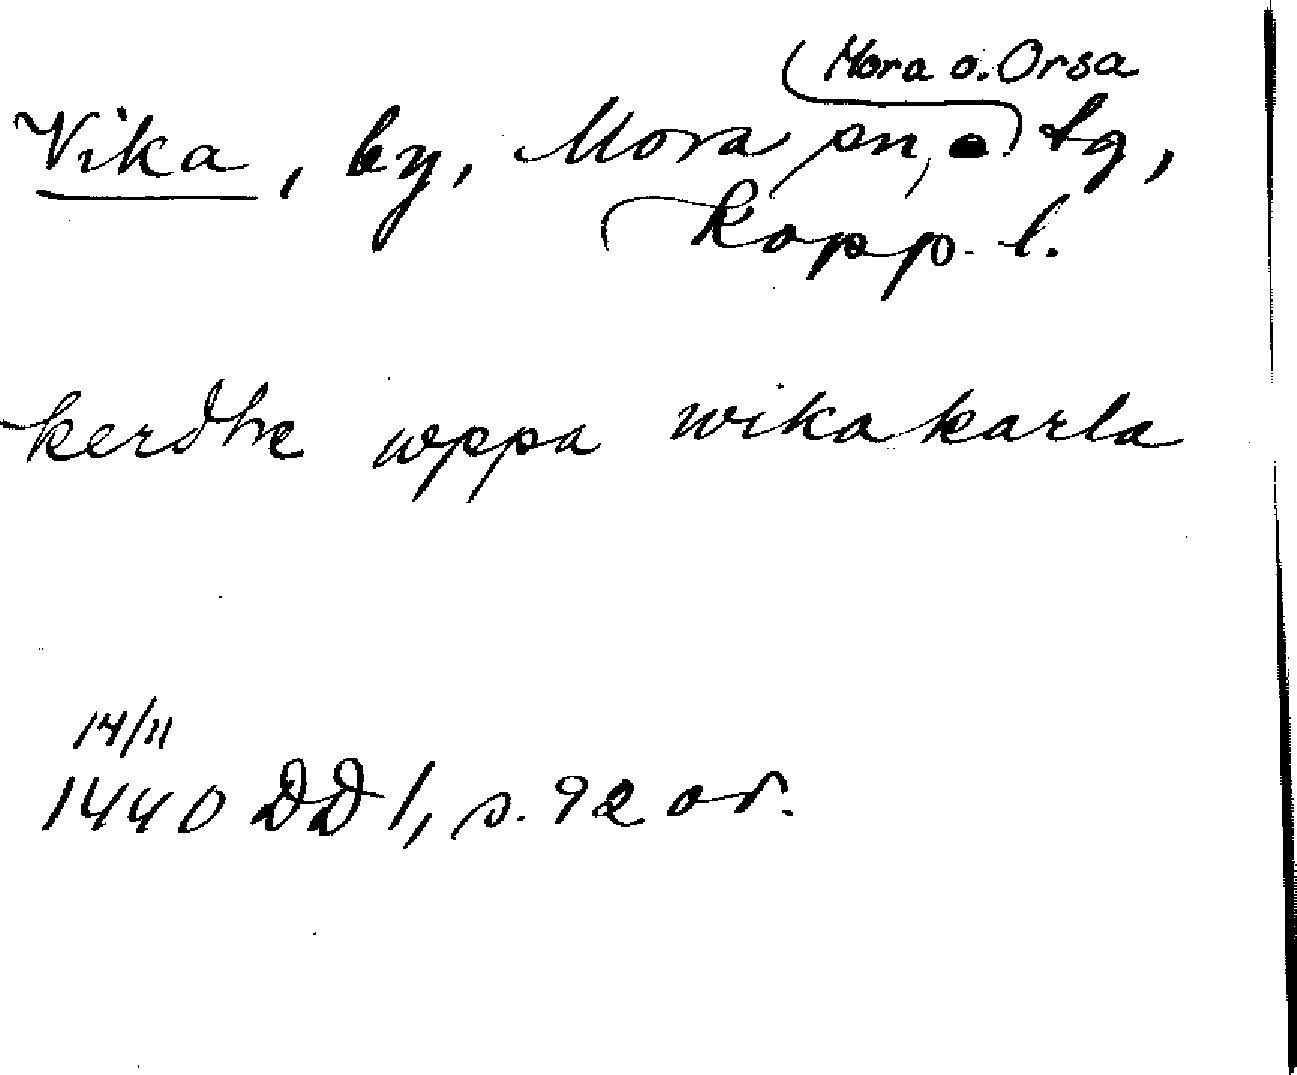 Mora o. Orsa
Vika, by, Mora sn, tg,
Kopp. l.
kerdhe wppa wikakarla
14/11
1440 DD 1, s. 92 or.